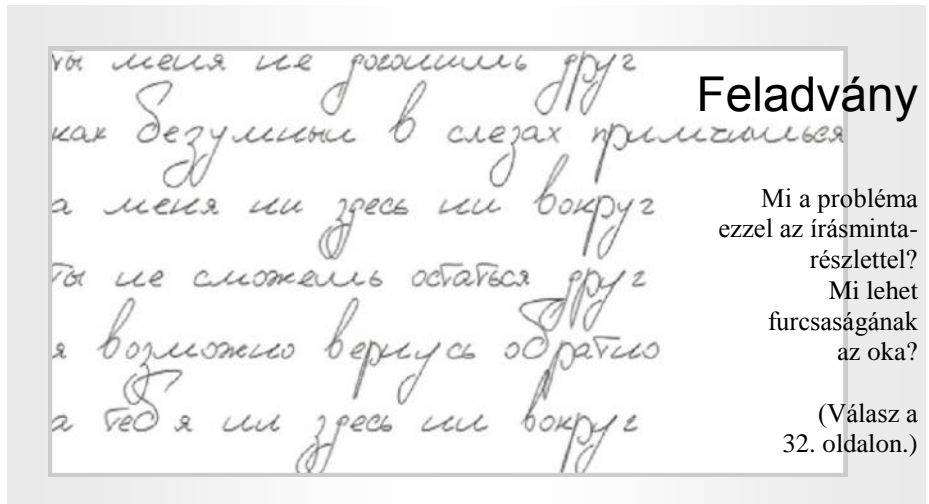 ты меня не догонишь друг
как безумный в слезах примчишься
а меня ни здесь ни вокруг
ты не сможешь остаться друг
я возможно вернусь обратно
а тебя ни здесь ни вокруг
Feladvány
Mi a probléma
ezzel az írásminta-
részlettel?
Mi lehet
furcsaságának
az oka?
(Válasz a
32. oldalon.)